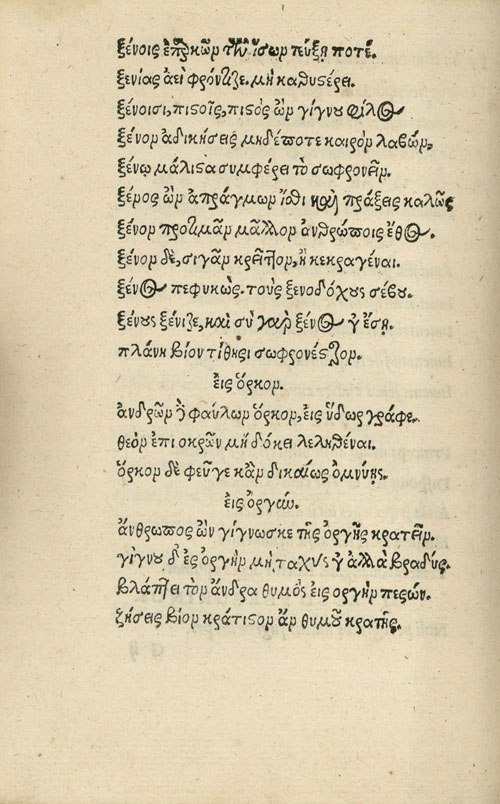 ξένοις ἐπαρκῶν τῶν ἴσων τεύξῃ ποτέ.
ξενίας ἀεὶ φρόντιζε. μὴ καθυστέρει.
ξένοισι, πιστοῖς, πιστὸς ὢν γίγνου φίλος
ξένον ἀδικήσεις μηδέποτε καιρὸν λαβών,
ξένῳ μάλιστα συμφέρει τὸ σωφρονεῖν.
ξένος ὢν ἀπράγμων ἴσθι καὶ πράξεις καλῶς
ξένον προτιμᾶν μᾶλλον ἀνθρώποις ἔθος.
ξένον δὲ, σιγᾶν κρεῖττον, ἢ κεκραγέναι.
ξένος πεφυκὼς. τοὺς ξενοδόχους σέβου.
ξένους ξένιζε, καὶ σὺ γὰρ ξένος γ' ἔσῃ.
πλάνη βίον τίθησι σωφρονέστερον.
εἰς ὅρκον.
ἀνδρῶν δ φαύλων ὅρκον, εἰς ὕδωρ γράφε.
θεὸν ἐπιορκῶν μὴ δόκει λεληθέναι.
ὅρκον δὲ φεῦγε κἂν δικαίως ὀμνύῃς.
εἰς ὀργών.
ἄνθρωπος ὢν γίγνωσκε τῆς ὀργῆς κρατεῖν.
γίγνου δ' ἐς ὀργὴν μὴ ταχύς γ' ἀλλὰ βραδύς.
βλάπτει τὸν ἄνδρα θυμὸς εἰς ὀργὴν πεσών.
ζήσεις βίον κράτιστον ἂν θυμοῦ κρατῇς.